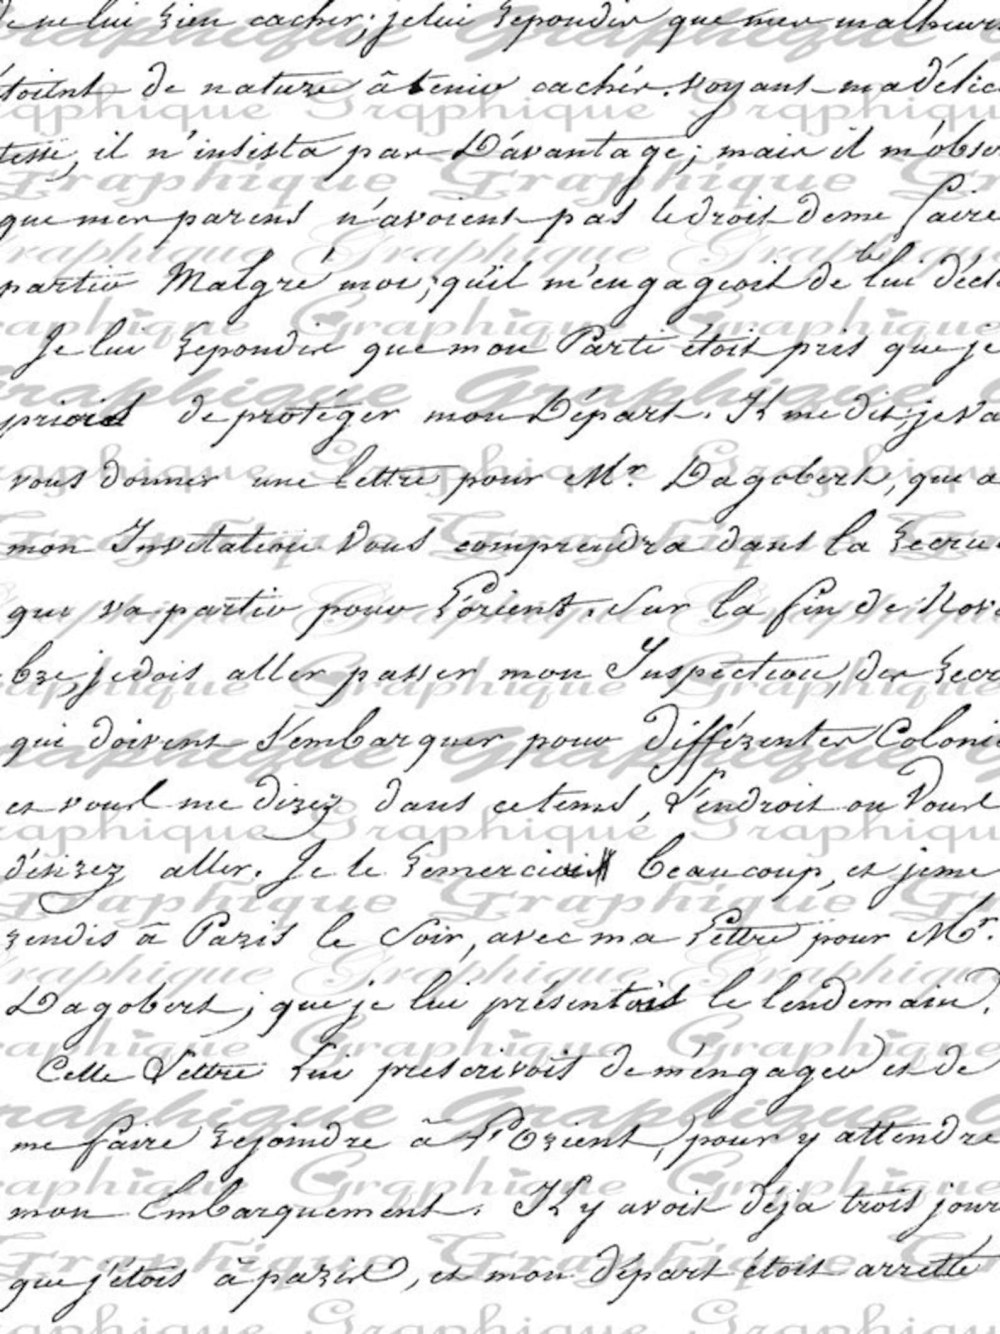 de ne lui rien cacher; je lui repondis que mes malheurs
étoient de nature à tenir cachés. voyant ma délica
tesse, il n'insista pas D'avantage; mais il m'obser
que mes parens n'avoient pas le droit de me faire
partir Malgré moi; qu'il m'engageoit de le lui décl
Je lui repondis que mon Parti étoit pris que je
priois de protéger mon Départ. Il me dit; je va
vous donner une lettre pour Mr. Dagobert, que a
mon Invitation vous comprendra dans la recrue
qui va partir pour L'orient. Sur la fin de Nove
bre, je dois aller passer mon Inspection, des recr
qui doivent s'embarquer pour différentes Coloni
et vous me direz dans ce tems, L'endroit ou Vous
désirez aller. Je le remerciais beaucoup, et je me
rendis à Paris le Soir, avec ma Lettre pour Mr.
Dagobert; que je lui présentois le lendemain.
Cette Lettre Lui prescrivoit de m'engager et de
me faire rejoindre à L'Orient, pour y attendre
mon Embarquement. Il y avoit déja trois jour
que j'étois à paris, et mon départ étoit arretté
Graphique